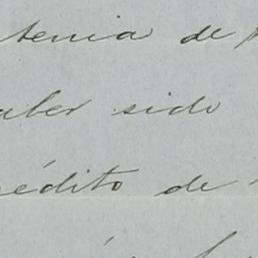 tenia de
aber sido
rédito de